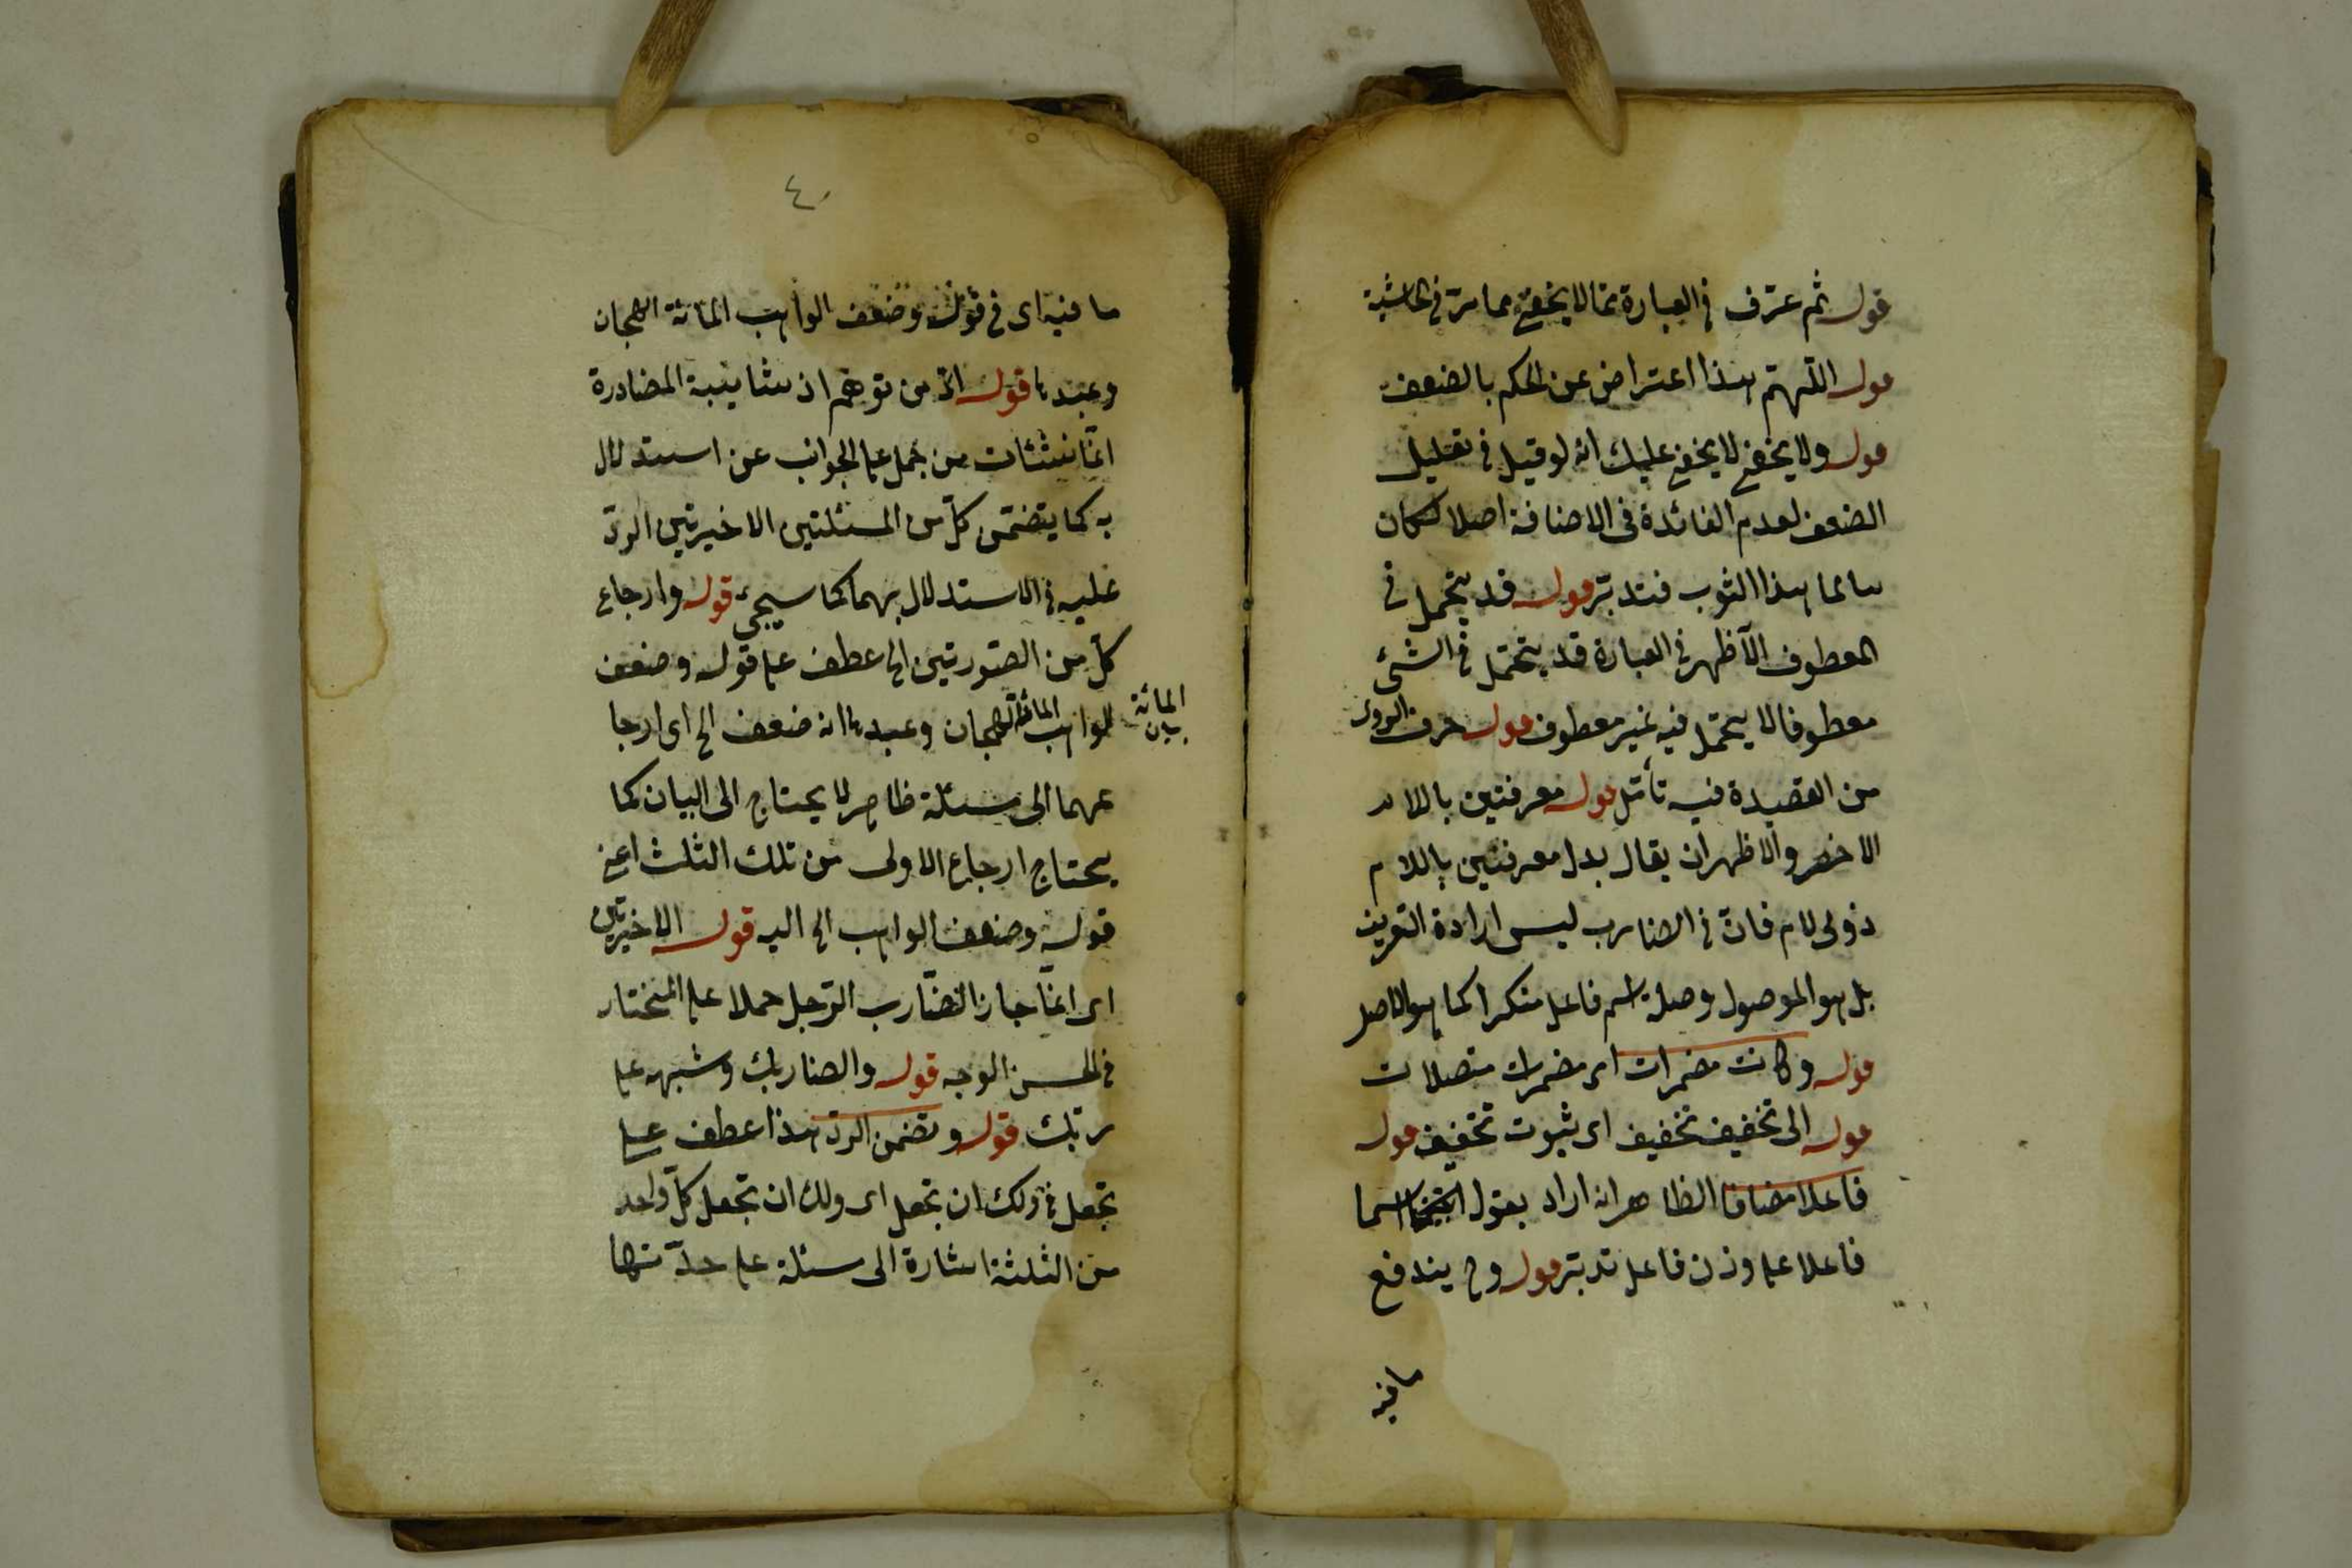 قوله ثم عرّف في العبارة ما لا يخفى مما مرّ في الحاشية
قوله اللّهمّ هذا اعتراض عن الحكم بالضعف
قوله ولا يخفى لا يخفى عليك انه لو قيل في تعليل
الضعف لعدم الفائدة في الاضافة اصلا لكان
سالما هذا الثوب فتدبّر قوله قد يتحمل في
المعطوف الاظهر في العبارة قد يتحمل في الشئ
معطوفا لا يتحمل فيه غير معطوف قوله حرف الروى
من القصيدة فيه تأمّل قوله معرفتين باللام
الاخصر والاظهر ان يقال بدل معرفتين باللام
ذوى لام فانّ في الضارب ليس ارادة التعريف
بل هو الموصول وصلة اسم فاعل منكرا كما هو الاصل
قوله وكانت مضمرات اى مضمرات متصلات
قوله الى تخفيف تخفيف اى ثبوت تخفيف قوله
فاعلا مضافا الظاهر انه اراد بقول اسما
فاعلا على وزن فاعل تدبّر قوله وح يندفع
ما فيه
٤
ما فيه اى في قوله وضعف الواهب المائة الهجان
وعبدها قوله اذ من توهّم ان شايبة المصادرة
انّما نشئات من حمل على الجواب عن استدلال
به كما يتضمّن كلّ من المسئلتين الاخيرتين الردّ
عليه في الاستدلال بهما كما سيجئ قوله وارجاع
كلّ من الصّورتين الخ عطف على قوله وضعف
الواهب المائة الهجان وعبدها انه ضعف الخ اى ارجا
المائة
بيان
عهما الى مسئلة ظاهر لا يحتاج الى البيان كما
يحتاج ارجاع الاولى من تلك الثلث اعنى
قوله وضعف الواهب الخ اليه قوله الاخيرتين
اى انّما جاز الضّارب الرّجل حملا على المختار
في الحسن الوجه قوله والضاربك وشبهه على
ربّك قوله وتضمن الردّ هذا عطف على
تجعل في ولك ان تجعل اى ولك ان تجعل كلّ واحد
من الثلثة اشارة الى مسئلة على حدّتها